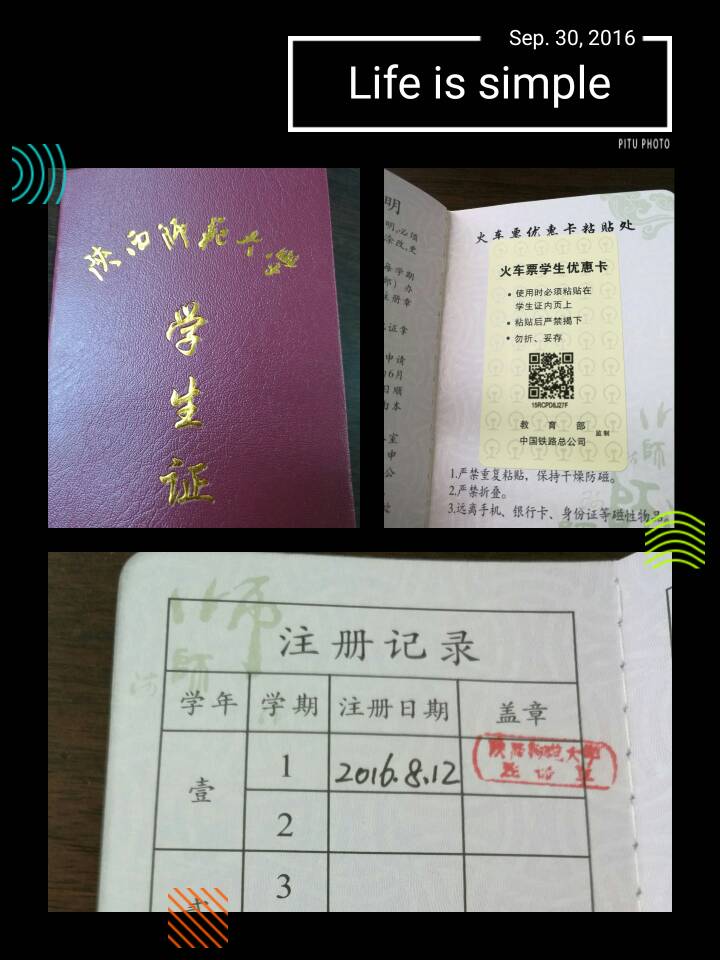 Sep. 30, 2016
Life is simple
PITU PHOTO
陕西师范大学
学
生
证
明
火车票优惠卡粘贴处
火车票学生优惠卡
• 使用时必须粘贴在
学生证内页上
• 粘贴后严禁揭下
• 勿折、妥存
15RCPD8J27F
教育部
中国铁路总公司
监制
1.严禁重复粘贴，保持干燥防磁。
2.严禁折叠。
3.远离手机、银行卡、身份证等磁性物品。
师
注册记录
学年 学期 注册日期 盖章
壹 1 2016.8.12
陕西师范大学
2
3